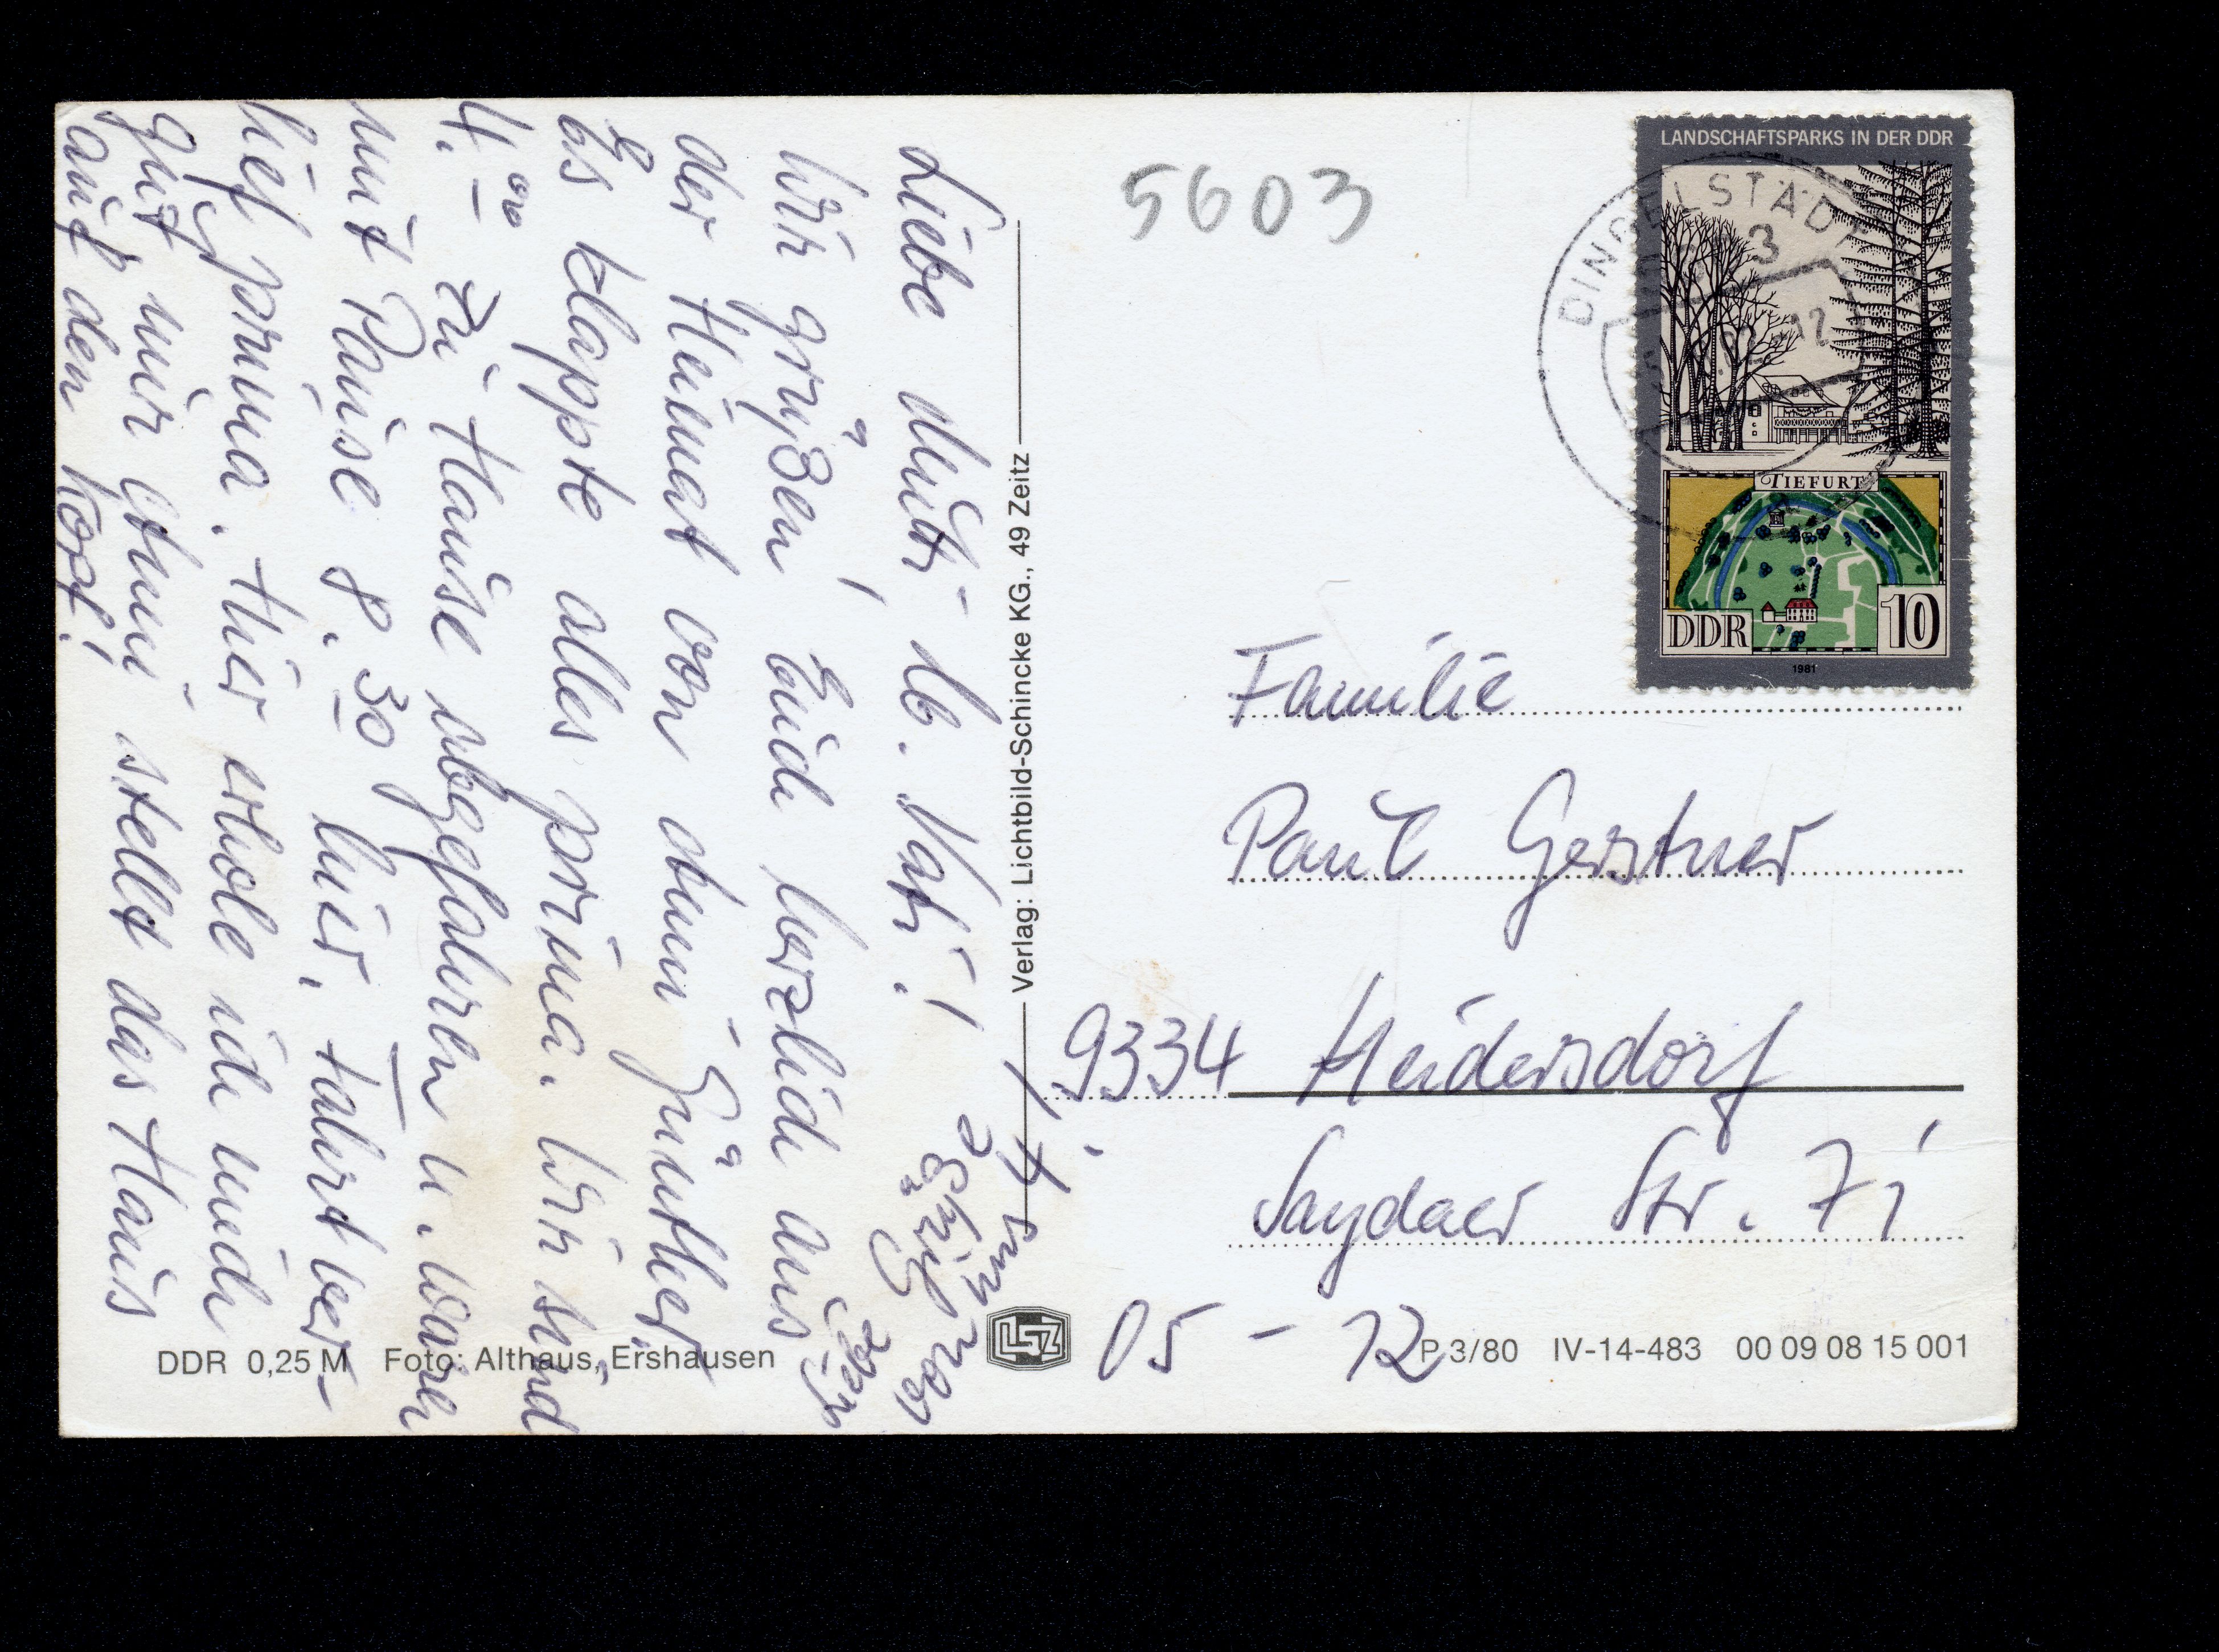 Liebe Mutti lb. Vati!
Wir grüßen Euch herzlich aus
der Heimat von Omi Günther.
Es klappte alles prima. Wir sind
4.00 zu Hause abgefahren u. waren
mit Pause 8.30 hier. Fahrt ver-
lief prima. Hier erhole ich mich
gut nur Omi stellt das Haus
auf den Kopf!
Verlag: Lichtbild-Schincke KG., 49 Zeitz
DDR 0,25 M Foto: Althaus, Ershausen
LSZ
5603
LANDSCHAFTSPARKS IN DER DDR
DINGELSTÄDT
3
TIEFURT
DDR
10
1981
Familie
Paul Gerstner
9334 Heidersdorf
Saydaer Str. 71
05 - 12
P 3/80 IV-14-483 00 09 08 15 001